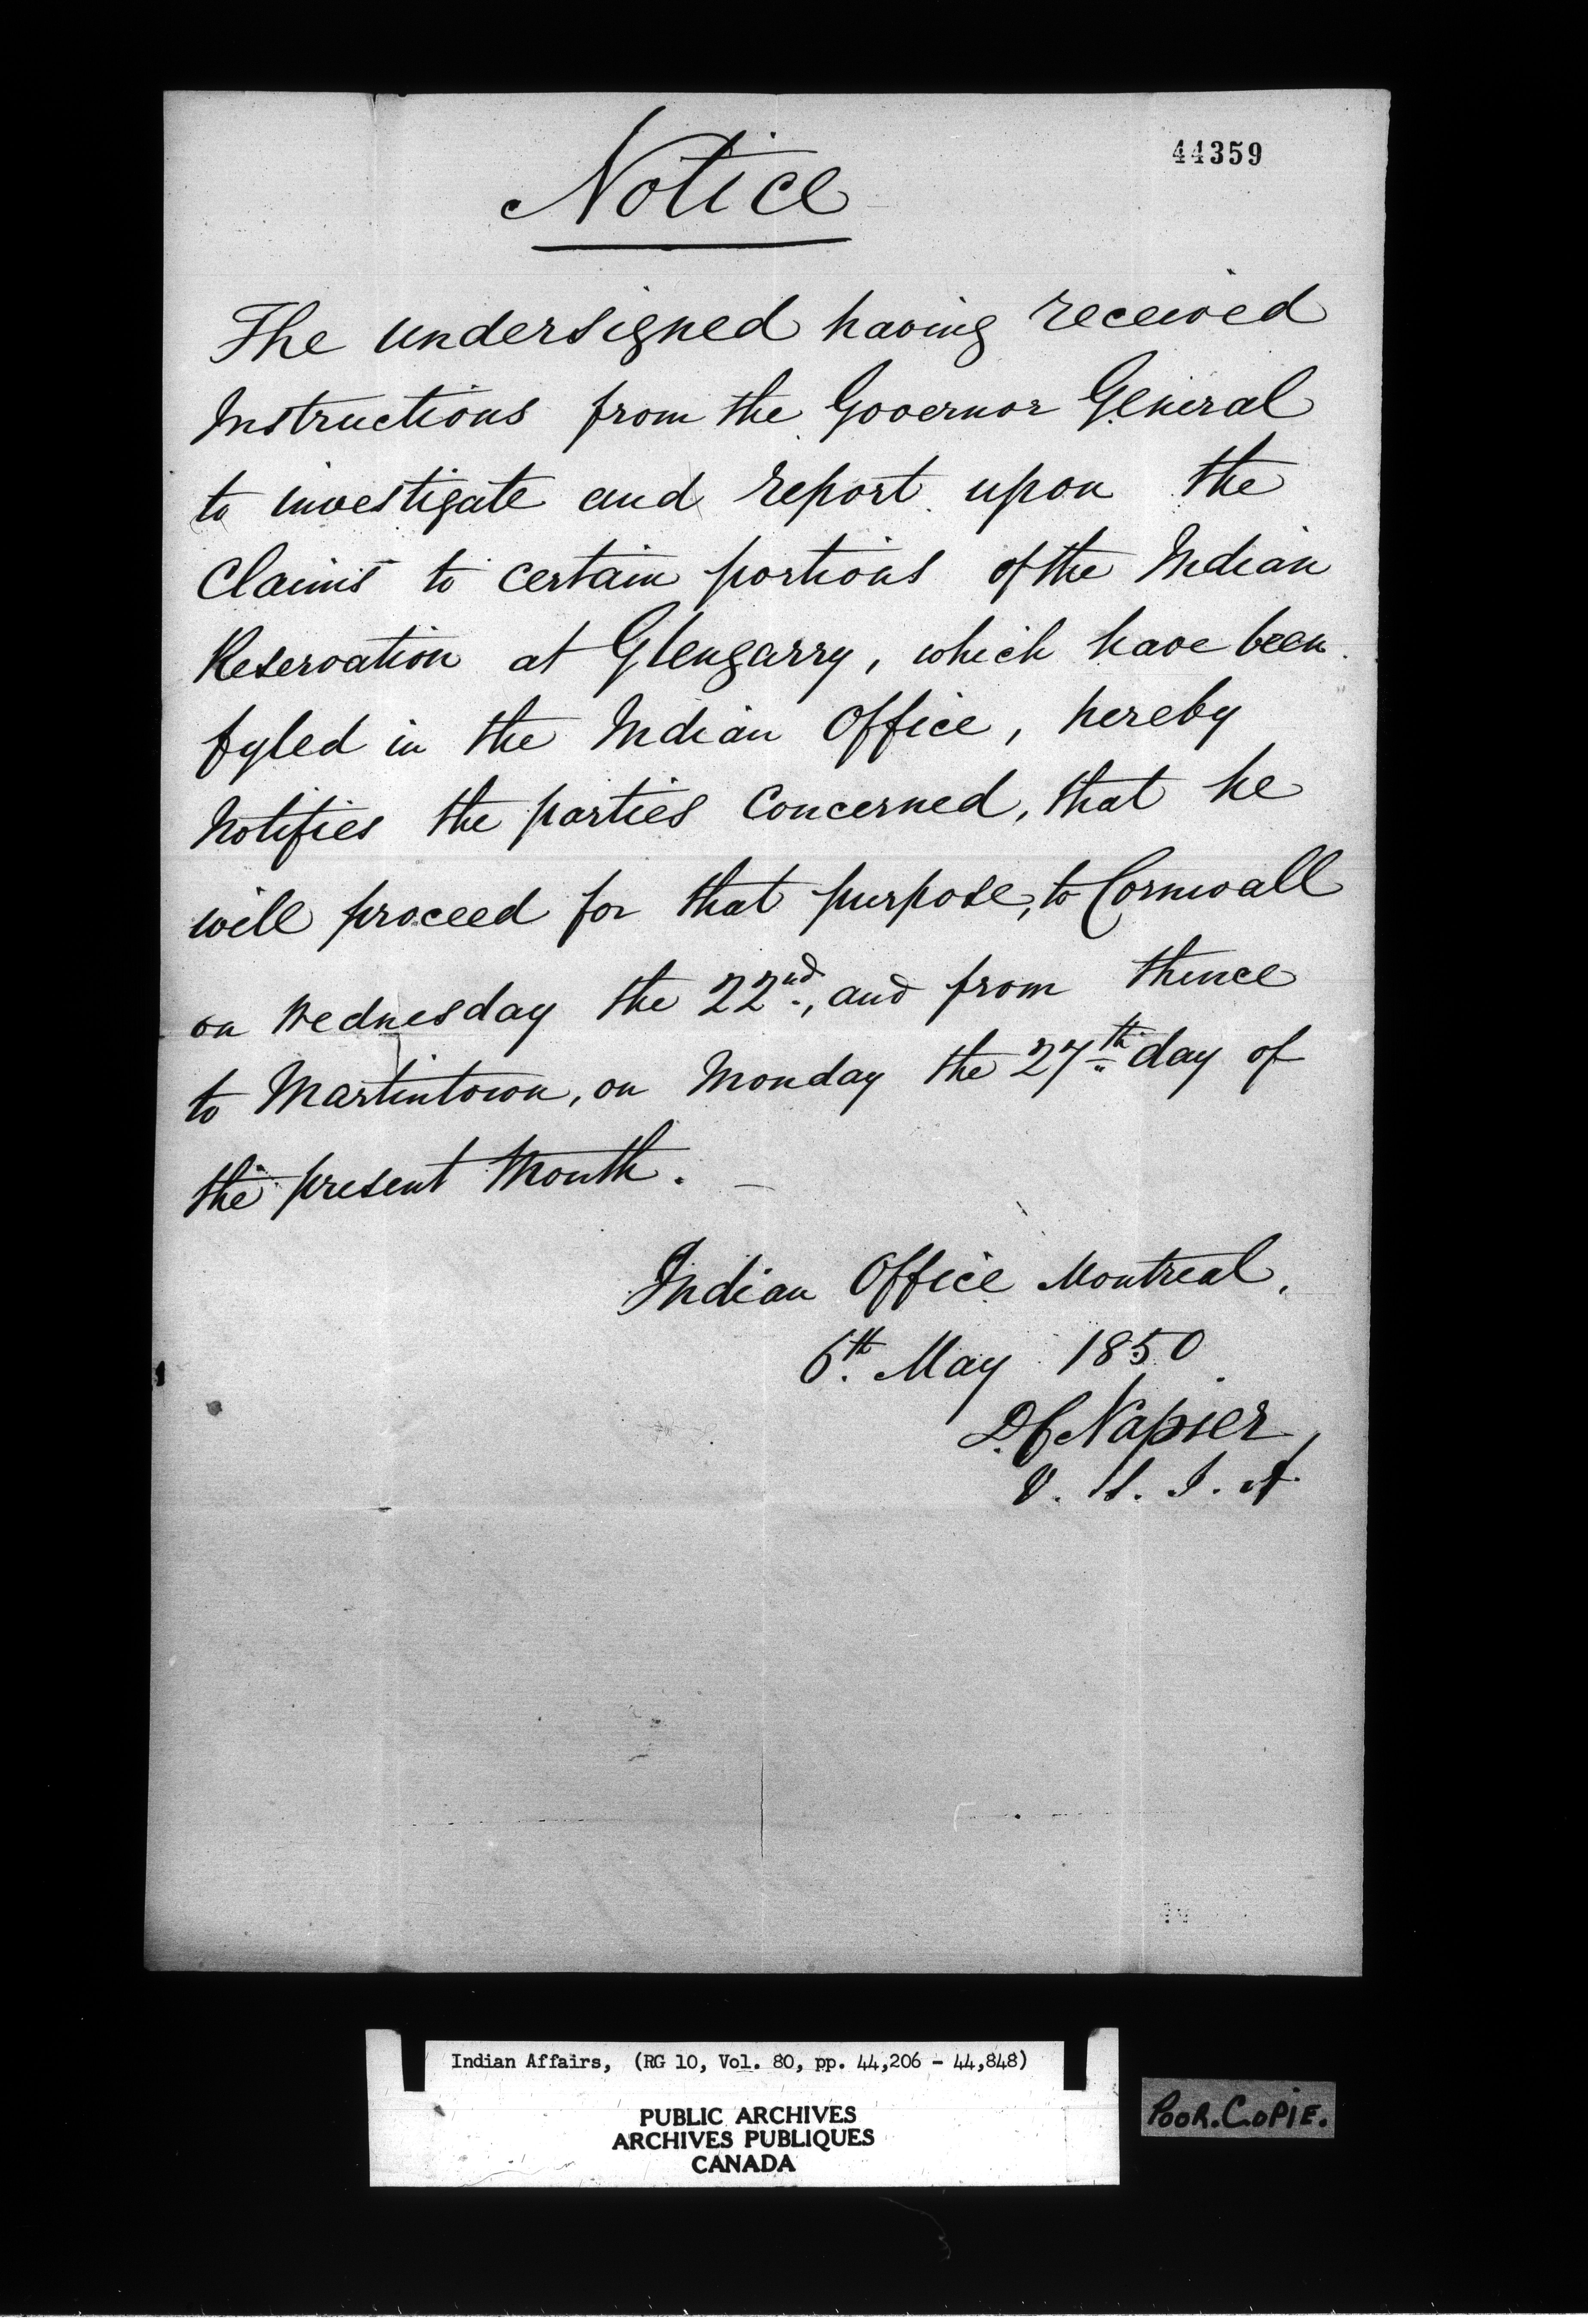 44359
Notice
The undersigned having received
Instructions from the Governor General
to investigate and report upon the
Claims to certain portions of the Indian
Reservation at Glengarry, which have been
fyled in the Indian Office, hereby
Notifies the parties Concerned, that he
will proceed for that purpose, to Cornwall
on Wednesday the 22nd., and from thence
to Martintown, on Monday the 27th. day of
the present Month. —
Indian Office Montreal,
6th. May 1850
D.C Napier
S. I. A
Indian Affairs, (RG 10, Vol. 80, pp. 44,206 - 44,848)
PUBLIC ARCHIVES
ARCHIVES PUBLIQUES
CANADA
POOR.COPIE.